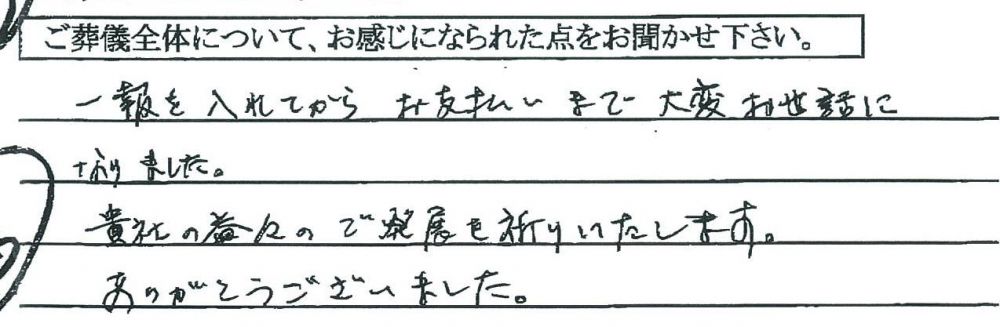 ご葬儀全体について、お感じになられた点をお聞かせ下さい。
一報を入れてから お支払いまで 大変お世話に
なりました。
貴社の益々のご発展を祈りいたします。
ありがとうございました。